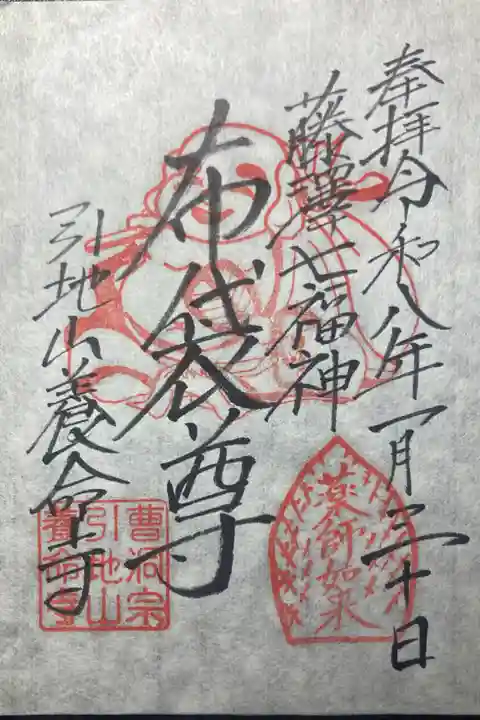 奉拝令和八年一月三十日
藤澤七福神
布袋尊
引地山養命寺
薬師如来
曹洞宗
引地山
養命寺